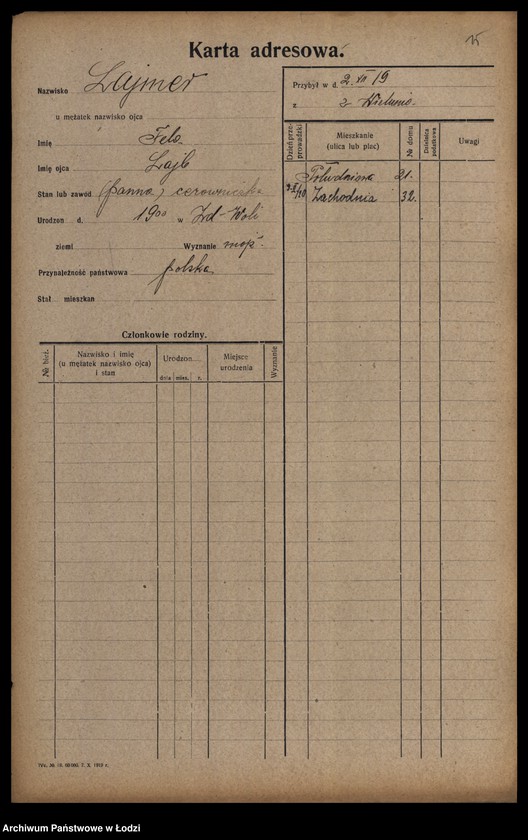 Karta adresowa.
Nazwisko Lajmer
u mężatek nazwisko ojca
Imię Fela
Imię ojca Lajb
Stan lub zawód (panna) cerowniczka
Urodzon d. 1900 w Zd-Woli
ziemi Wyznanie mojż.
Przynależność państwowa polska
Stał mieszkan
Przybył w d. 2 VII 19
z z Wielunia
Dzień przeprowadzki
Mieszkanie
(ulica lub plac)
№ domu
Dzielnica podatkowa
Uwagi
Południowa 21.
Zachodnia 32.
Członkowie rodziny.
№ bież.
Nazwisko i imię
(u mężatek nazwisko ojca)
i stan
Urodzon
dnia mies. r.
Miejsce
urodzenia
Wyznanie
Archiwum Państwowe w Łodzi